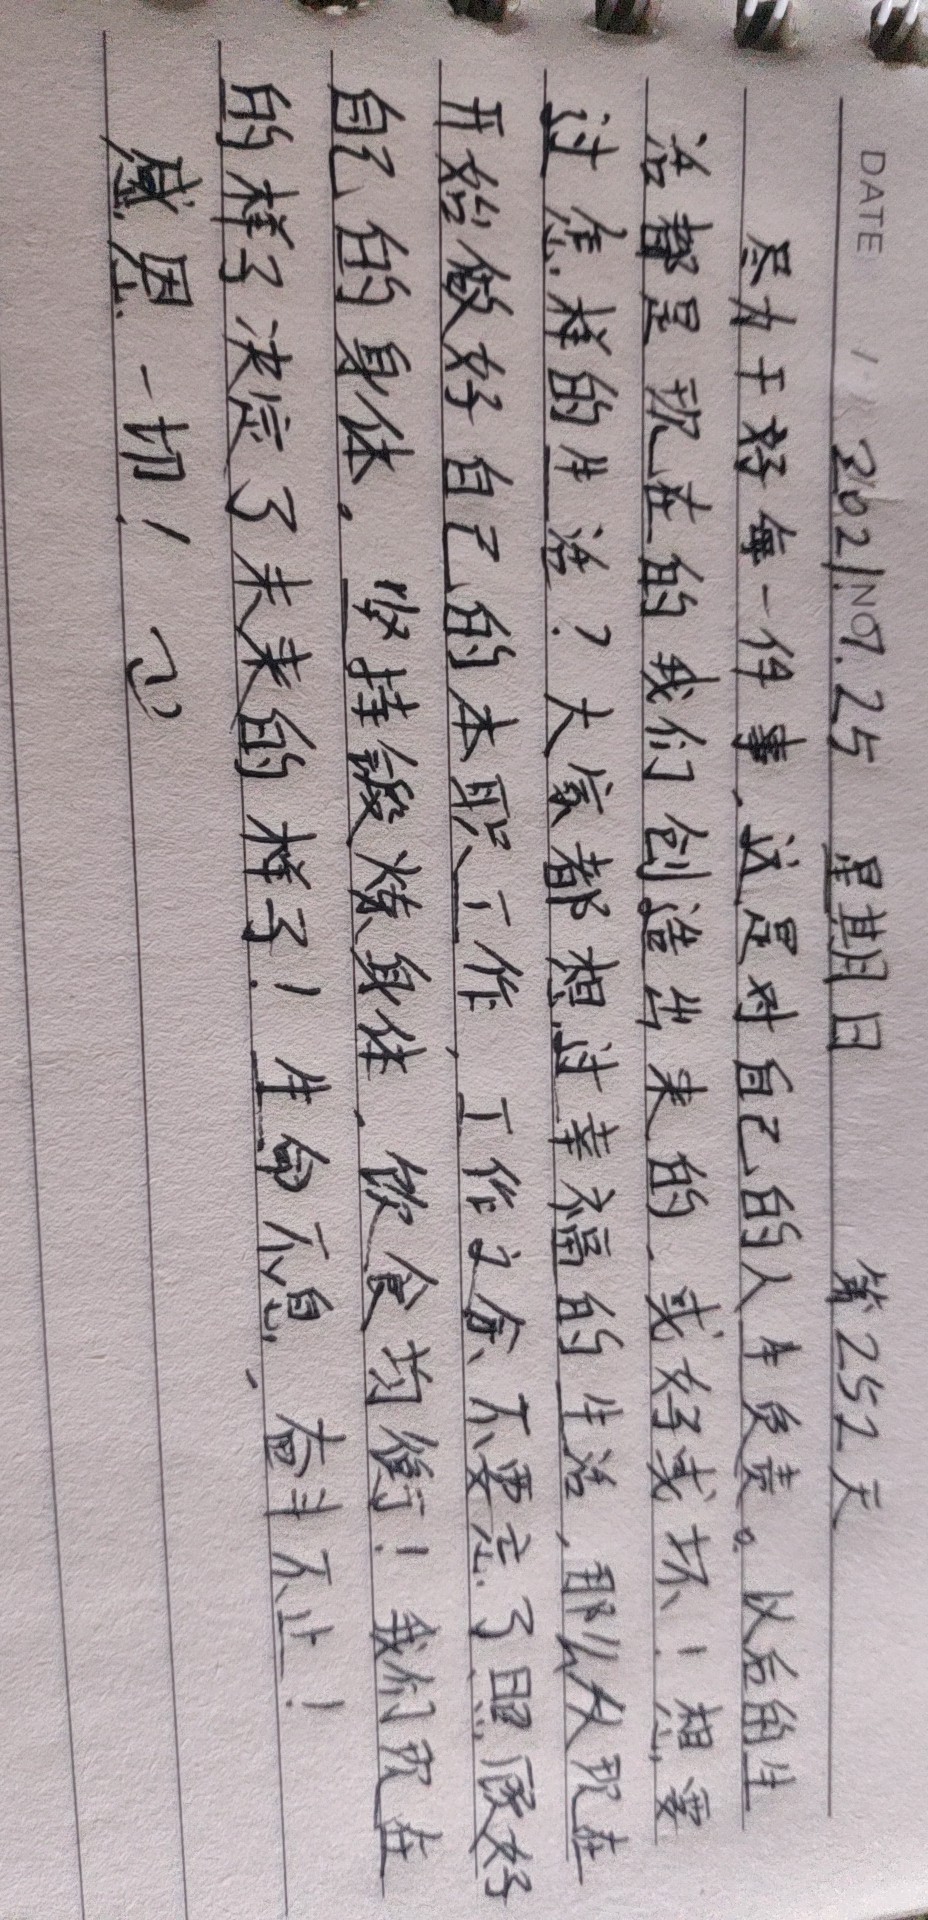 DATE 2021.NO7.25 星期日 第252天
尽力干好每一件事,这是对自己的人生负责。以后的生
活都是现在的我们创造出来的,或好或坏!想要
过怎样的生活?大家都想过幸福的生活,那么从现在
开始做好自己的本职工作,工作之余不要忘了照顾好
自己的身体。坚持锻炼身体,饮食均衡!我们现在
的样子决定了未来的样子!生命不息,奋斗不止!
感恩一切!